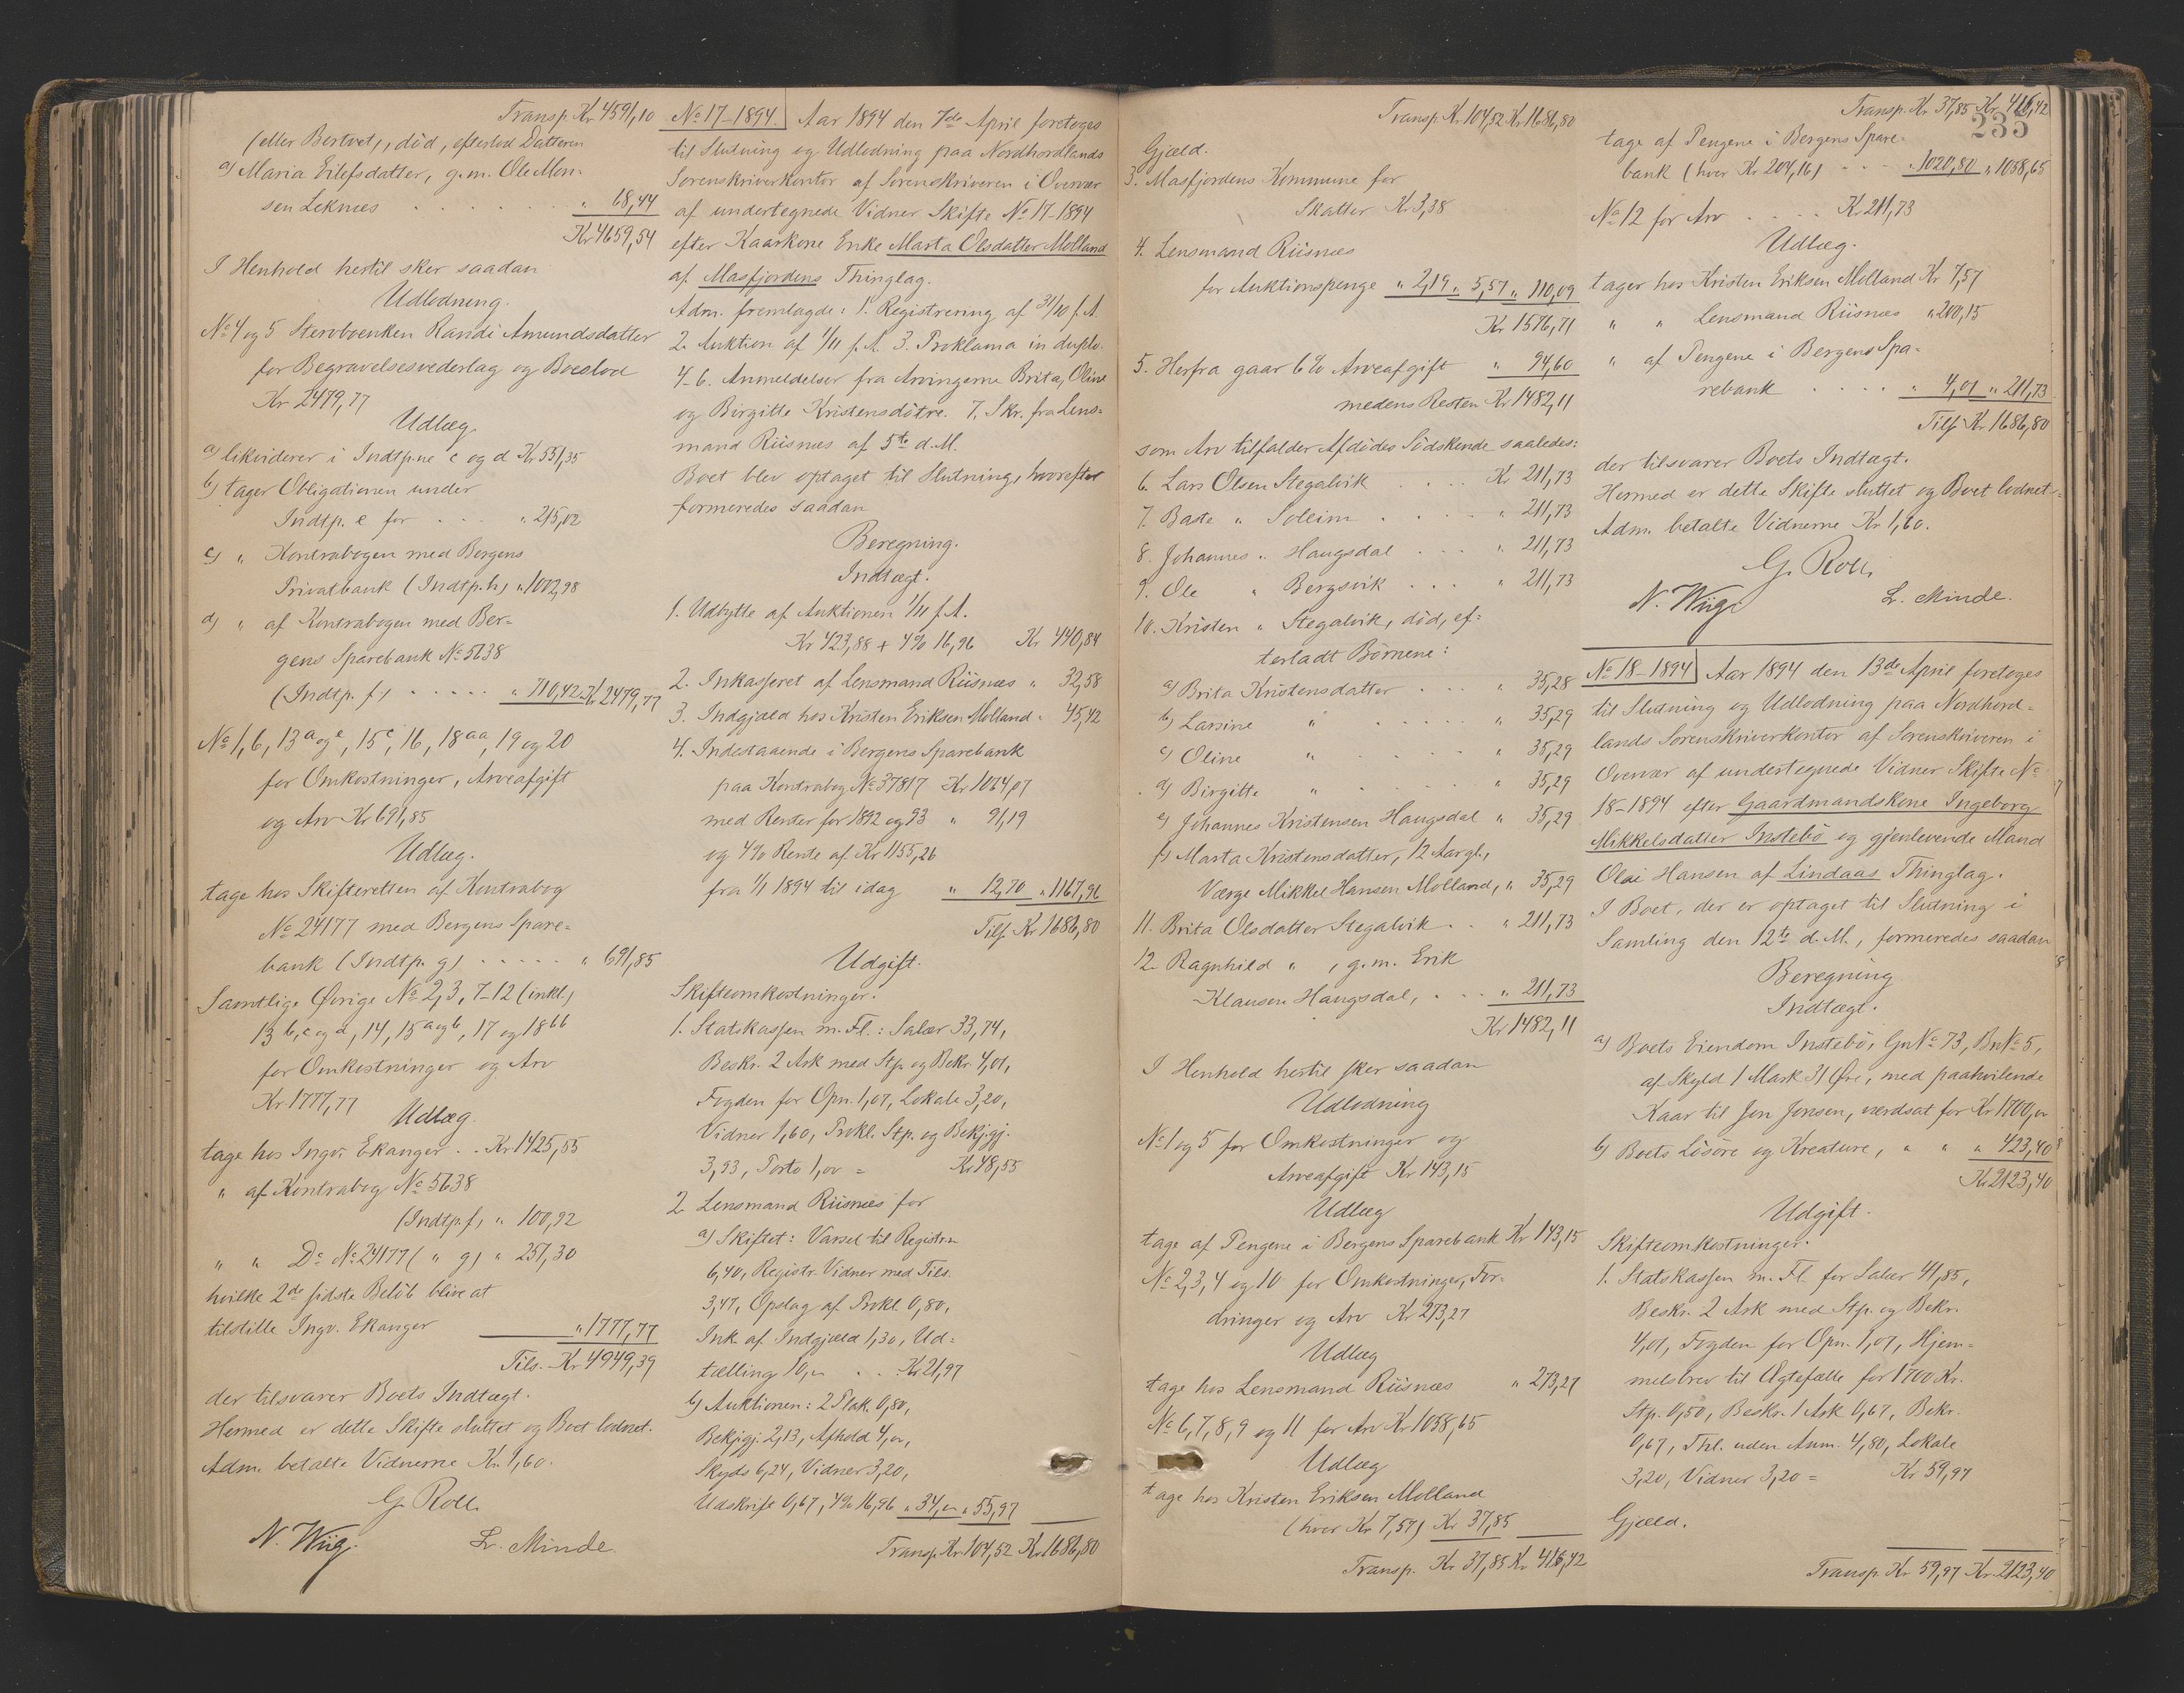 Transp. Kr 4591,10
(eller Bertvet), död, efterlod Datteren
a) Maria Eilefsdatter, g. m. Ole Mon-
sen Leknes . . . . . . . „ 68,44
Kr 4659,54
I Henhold hertil sker saadan
Udlodning.
No 4 og 5 Stervboenken Randi Amundsdatter
for Begravelsesvederlag og Boeslod
Kr 2479,77
Udlæg.
a) likviderer i Indtp.ne c og d Kr 551,35
b) tager Obligationen under
Indtp. e for . . . „ 215,02
c) „ Kontrabogen med Bergens
Privatbank (Indtp. h) „ 1002,98
d) „ af Kontrabogen med Ber-
gens Sparebank No 5638
(Indtp. f) . . . . . „ 710,42 Kr 2479,77
No 1, 6, 13 a og e, 15 c, 16, 18 aa, 19 og 20
for Omkostninger, Arveafgift
og Arv Kr 691,85
Udlæg.
tage hos Skifteretten af Kontrabog
No 24177 med Bergens Spare-
bank (Indtp. g) . . . . . „ 691,85
Samtlige Övrige No 2, 3, 7-12 (inkl.)
13 b, c og d, 14, 15 a og b, 17 og 18 bb
for Omkostninger og Arv
Kr 1777,77
Udlæg.
tage hos Ingv. Ekanger . . Kr 1425,55
„ af Kontrabog No 5638
(Indtp. f) „ 100,92
„ „ Do No 24177 ( „ g) „ 251,30
hvilke 2de sidste Belöb blive at
tilstille Ingv. Ekanger „ 1777,77
Tils. Kr 4949,39
der tilsvarer Boets Indtægt.
Hermed er dette Skifte sluttet og Boet lodnet.
Adm. betalte Vidnerne Kr. 1,60.
G. Roll.
N. Wiig. L. Minde.
No 17-1894. Aar 1894 den 7de April foretoges
til Slutning og Udlodning paa Nordhordlands
Sorenskriverkontor af Sorenskriveren i Overvær
af undertegnede Vidner Skifte No 17-1894
efter Kaarkone Enke Marta Olsdatter Molland
af Masfjordens Thinglag.
Adm. fremlagde: 1. Registrering af 31/10 f. A.
2. Auktion af 1/11 f. A. 3. Proklama in duplo.
4-6. Anmeldelser fra Arvingerne Brita, Oline
og Birgitte Kristensdötre. 7. Skr. fra Lens-
mand Riisnes af 5te d. M.
Boet blev optaget til Slutning, hvorefter
formeredes saadan
Beregning.
Indtægt.
1. Udbytte af Auktionen 1/11 f. A.
Kr 423,88 + 4% 16,96 Kr 440,84
2. Inkasseret af Lensmand Riisnes „ 32,58
3. Indgjæld hos Kristen Eriksen Molland „ 45,42
4. Indestaaende i Bergens Sparebank
paa Kontrabog No 37817 Kr 1064,07
med Renter for 1892 og 93 „ 91,19
og 4% Rente af Kr 1155,26
fra 1/1 1894 til idag „ 12,70 „ 1167,96
Tils. Kr 1686,80
Udgift.
Skifteomkostninger.
1. Statskassen m. Fl.: Salær 33,74,
Beskr. 2 Ark med Stp. og Bekr. 4,01,
Fogden for Opn. 1,07, Lokale 3,20,
Vidner 1,60, Prokl. Stp. og Bekj.gj.
3,93, Porto 1,00 = Kr 48,55
2. Lensmand Riisnes for
a) Skiftet: Varsel til Registr.
6,40, Registr. Vidner med Tils.
3,47, Opslag af Prokl. 0,80,
Ink. af Indgjæld 1,30, Ud-
tælling 10,00 . . . Kr 21,97
b) Auktionen: 2 Plak. 0,80,
Bekjgj. 2,13, Afhold 4,00,
Skyds 6,24, Vidner 3,20,
Udskrift 0,67, 4% 16,96 „ 34,00 „ 55,97
Transp. Kr 104,52 Kr 1686,80
Transp. Kr 104,52 Kr 1686,80
Gjæld.
3. Masfjordens Kommune for
Skatter Kr 3,38
4. Lensmand Riisnes
for Auktionspenge „ 2,19 „ 5,57 „ 110,09
Kr 1576,71
5. Herfra gaar 6% Arveafgift „ 94,60
medens Resten Kr 1482,11
som Arv tilfalder Afdödes Södskende saaledes:
6. Lars Olsen Stegalvik . . . . Kr 211,73
7. Baste „ Soleim . . . . „ 211,73
8. Johannes „ Haugsdal . . . „ 211,73
9. Ole „ Bergsvik . . . „ 211,73
10. Kristen „ Stegalvik, död, ef-
terladt Börnene:
a) Brita Kristensdatter . . . „ 35,28
b) Larsine „ . . . . . „ 35,29
c) Oline „ . . . . „ 35,29
d) Birgitte „ . . . . „ 35,29
e) Johannes Kristensen Haugsdal „ 35,29
f) Marta Kristensdatter, 12 Aar gl.,
Værge Mikkel Hansen Molland, „ 35,29
11. Brita Olsdatter Stegalvik . . „ 211,73
12. Ragnhild „ , g. m. Erik
Klausen Haugsdal, . . . „ 211,73
Kr 1482,11
I Henhold hertil sker saadan
Udlodning
No 1 og 5 for Omkostninger og
Arveafgift Kr 143,15
Udlæg
tage af Pengene i Bergens Sparebank Kr 143,15
No 2, 3, 4 og 10 for Omkostninger, For-
dringer og Arv Kr 273,27
Udlæg
tage hos Lensmand Riisnes „ 273,27
No 6, 7, 8, 9 og 11 for Arv Kr 1058,65
Udlæg
tage hos Kristen Eriksen Molland
(hver Kr 7,57) Kr 37,85
Transp. Kr 37,85 Kr 416,42
Transp. Kr 37,85 Kr 416,42
235
tage af Pengene i Bergens Spare-
bank (hver Kr 204,16) . . . „ 1020,80 „ 1058,65
No 12 for Arv . . . . Kr 211,73
Udlæg.
tager hos Kristen Eriksen Molland Kr 7,57
„ „ Lensmand Riisnes „ 200,15
„ af Pengene i Bergens Spa-
rebank . . . . „ 4,01 „ 211,73
Tils. Kr 1686,80
der tilsvarer Boets Indtægt.
Hermed er dette Skifte sluttet og Boet lodnet.
Adm. betalte Vidnerne Kr 1,60.
G. Roll.
N. Wiig. L. Minde.
No 18-1894 Aar 1894 den 13de April foretoges
til Slutning og Udlodning paa Nordhord-
lands Sorenskriverkontor af Sorenskriveren i
Overvær af undertegnede Vidner Skifte No
18-1894 efter Gaardmandskone Ingeborg
Mikkelsdatter Instebö og gjenlevende Mand
Olai Hansen af Lindaas Thinglag.
I Boet, der er optaget til Slutning i
Samling den 12te d. M., formeredes saadan
Beregning
Indtægt.
a) Boets Eiendom Instebö, Gn No 73, Bn No 5,
af Skyld 1 Mark 31 Öre, med paahvilende
Kaar til Jon Jonsen, værdsat for Kr 1700,00
b) Boets Lösöre og Kreature, „ „ „ 423,40
Kr 2123,40
Udgift.
Skifteomkostninger.
1. Statskassen m. Fl. for Salær 41,85,
Beskr. 2 Ark med Stp. og Bekr.
4,01, Fogden for Opn. 1,07, Hjem-
melsbrev til Ægtefælle for 1700 Kr.
Stp. 0,50, Beskr. 1 Ark 0,67, Bekr.
0,67, Thl. uden Anm. 4,80, Lokale
3,20, Vidner 3,20 = Kr 59,97
Gjæld.
Transp. Kr 59,97 Kr 2123,40